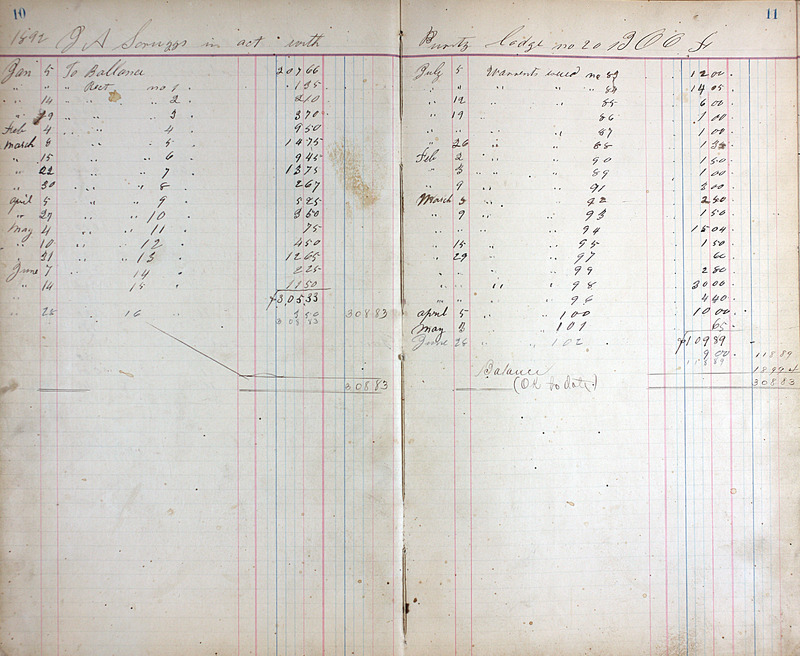 10
1892 J A Scruggs in act with
Jan 5 To Ballance 207 66
" " " Rect no 1 " 1 35
" 14 " " 2 " 2 10
" 29 " " 3 " 3 70
Feb 4 " " 4 " 9 50
March 8 " " 5 " 14 75
" 15 " " 6 " 9 45
" 22 " " 7 " 13 75
" 30 " " 8 " 2 67
April 5 " " 9 " 5 25
" 27 " " 10 " 3 50
May 4 " " 11 " 75
" 10 " " 12 " 4 50
" 31 " " 13 " 12 65
June 7 " 14 " 2 25
" 14 " 15 " 11 50
305 33
" 28 " 16 " 3 50 308 83
308 83
308 83
11
lodge no 20 I O O F Cr
July 5 Warrents no 83 12 00
" " " " 84 14 05
" 12 " " 85 6 00
" 19 " " 86 1 00
" " " " 87 1 00
" 26 " " 88
Feb 2 " " 90 1 50
" 3 " " 89 1 00
" 9 " " 91 3 00
March 3 " " 92 2 80
" 9 " " 93 1 50
" " " " 94 15 04
" 15 " " 95 1 50
" 29 " " 97 60
" " " 99 2 80
" " " " 98 30 00
" " " 96 4 40
April 5 " " 100 10 00
May 3 " " 101 65
June 28 " " 102
109 89
9 00 118 89
118 89
Balance 189 94
(OK to date.) 308 83